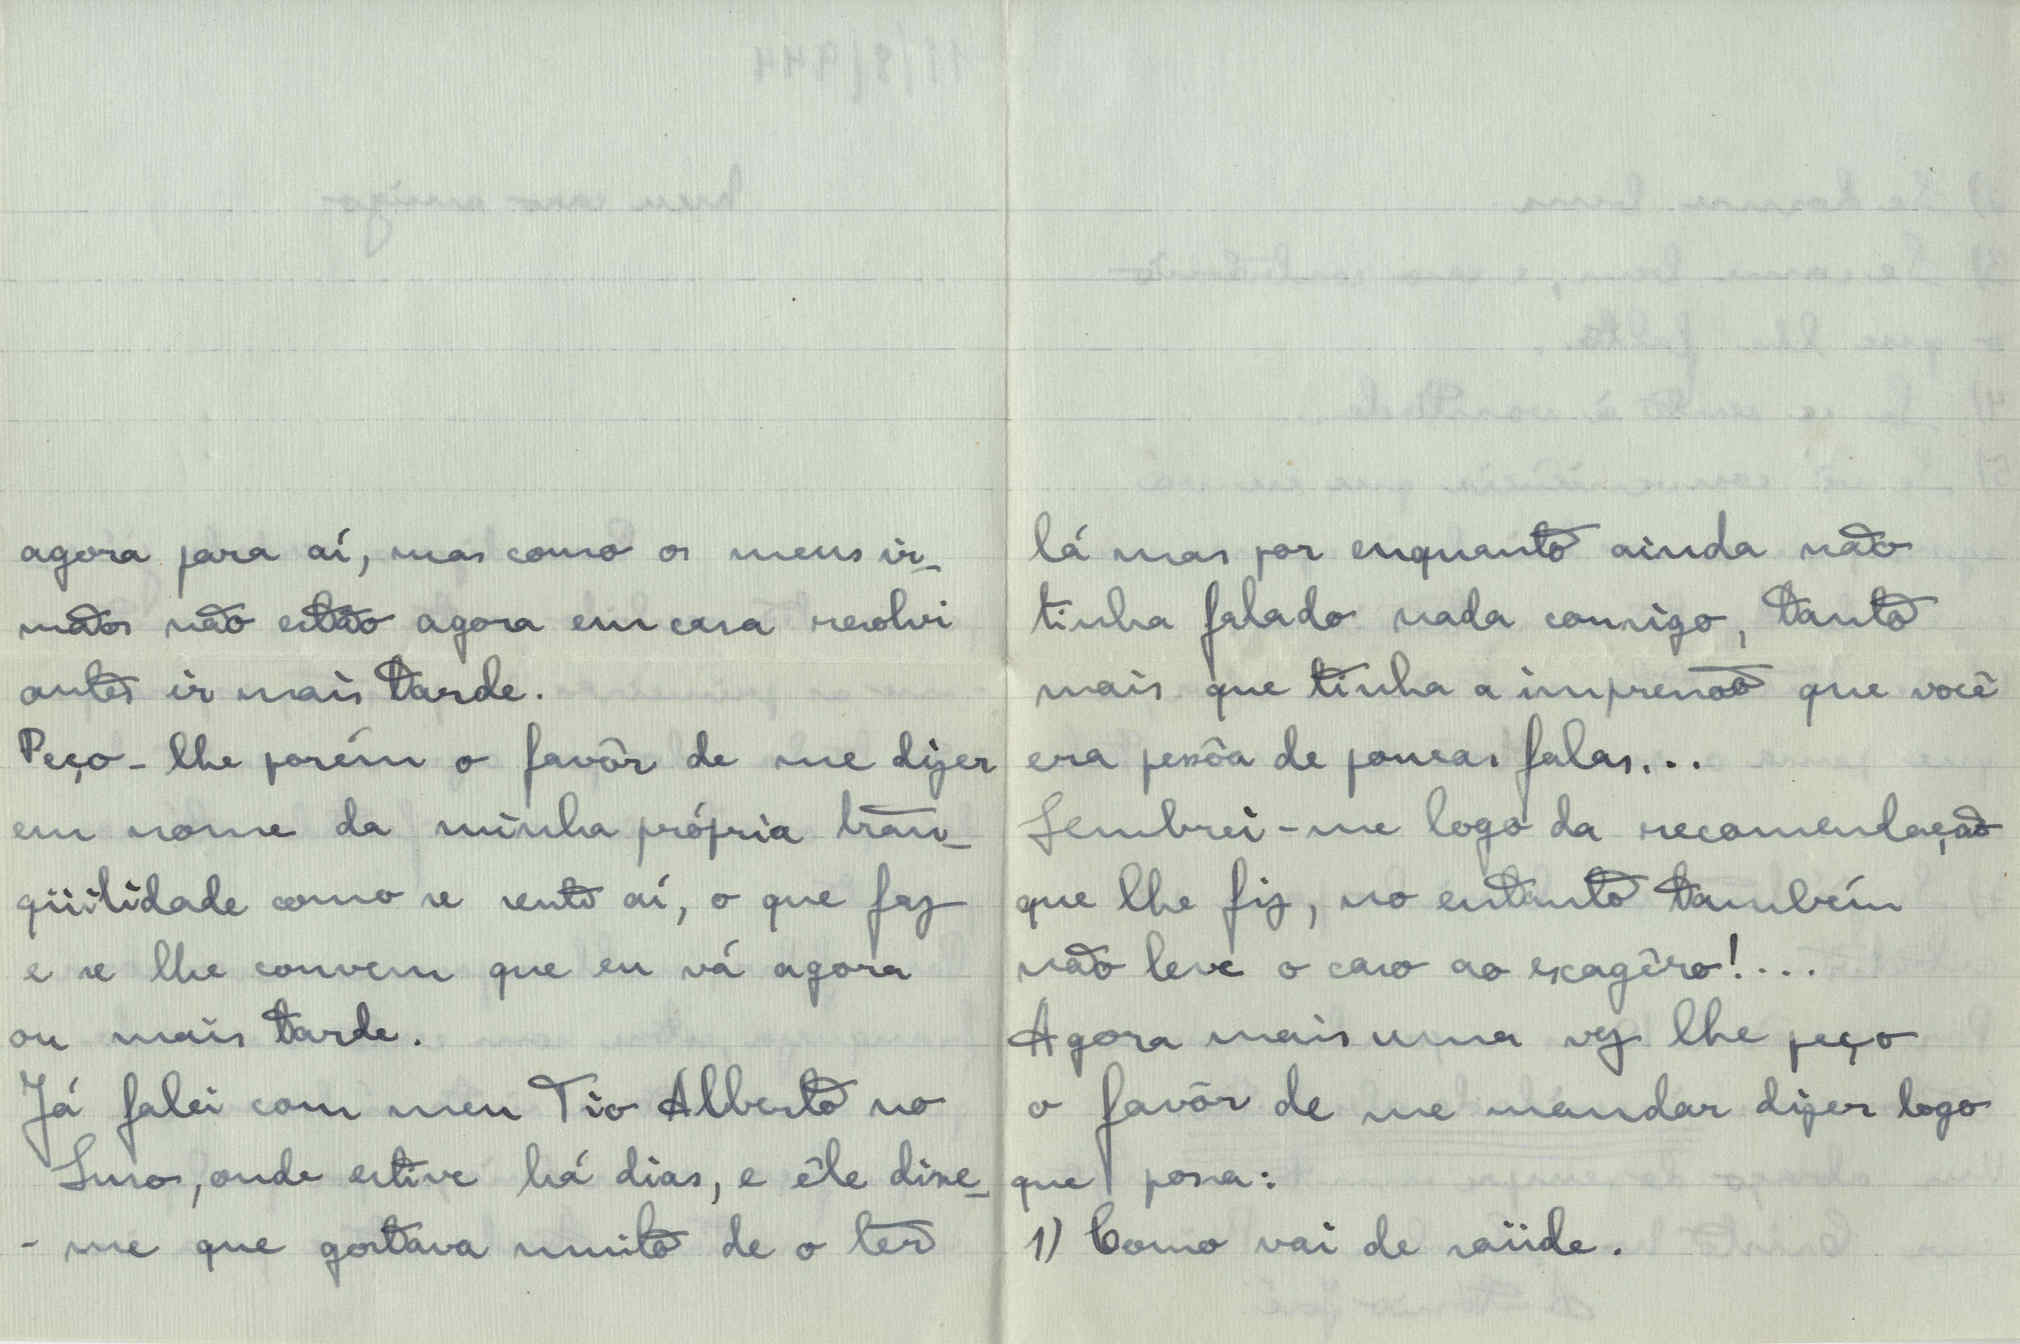 agora para aí, mas como os meus ir-
mãos não estão agora em casa resolvi
antes ir mais tarde.
Peço-lhe porém o favôr de me dizer
em nome da minha própria tran-
qüilidade como se sente aí, o que faz
e se lhe convem que eu vá agora
ou mais tarde.
Já falei com meu Tio Alberto no
Luso, onde estive há dias, e êle disse-
-me que gostava muito de o ter
lá mas por enquanto ainda não
tinha falado nada comigo, tanto
mais que tinha a impressão que você
era pessôa de poucas falas...
Lembrei-me logo da recomendação
que lhe fiz, no entanto também
não leve o caso ao exagêro!....
Agora mais uma vez lhe peço
o favôr de me mandar dizer logo
que possa:
1) Como vai de saüde.